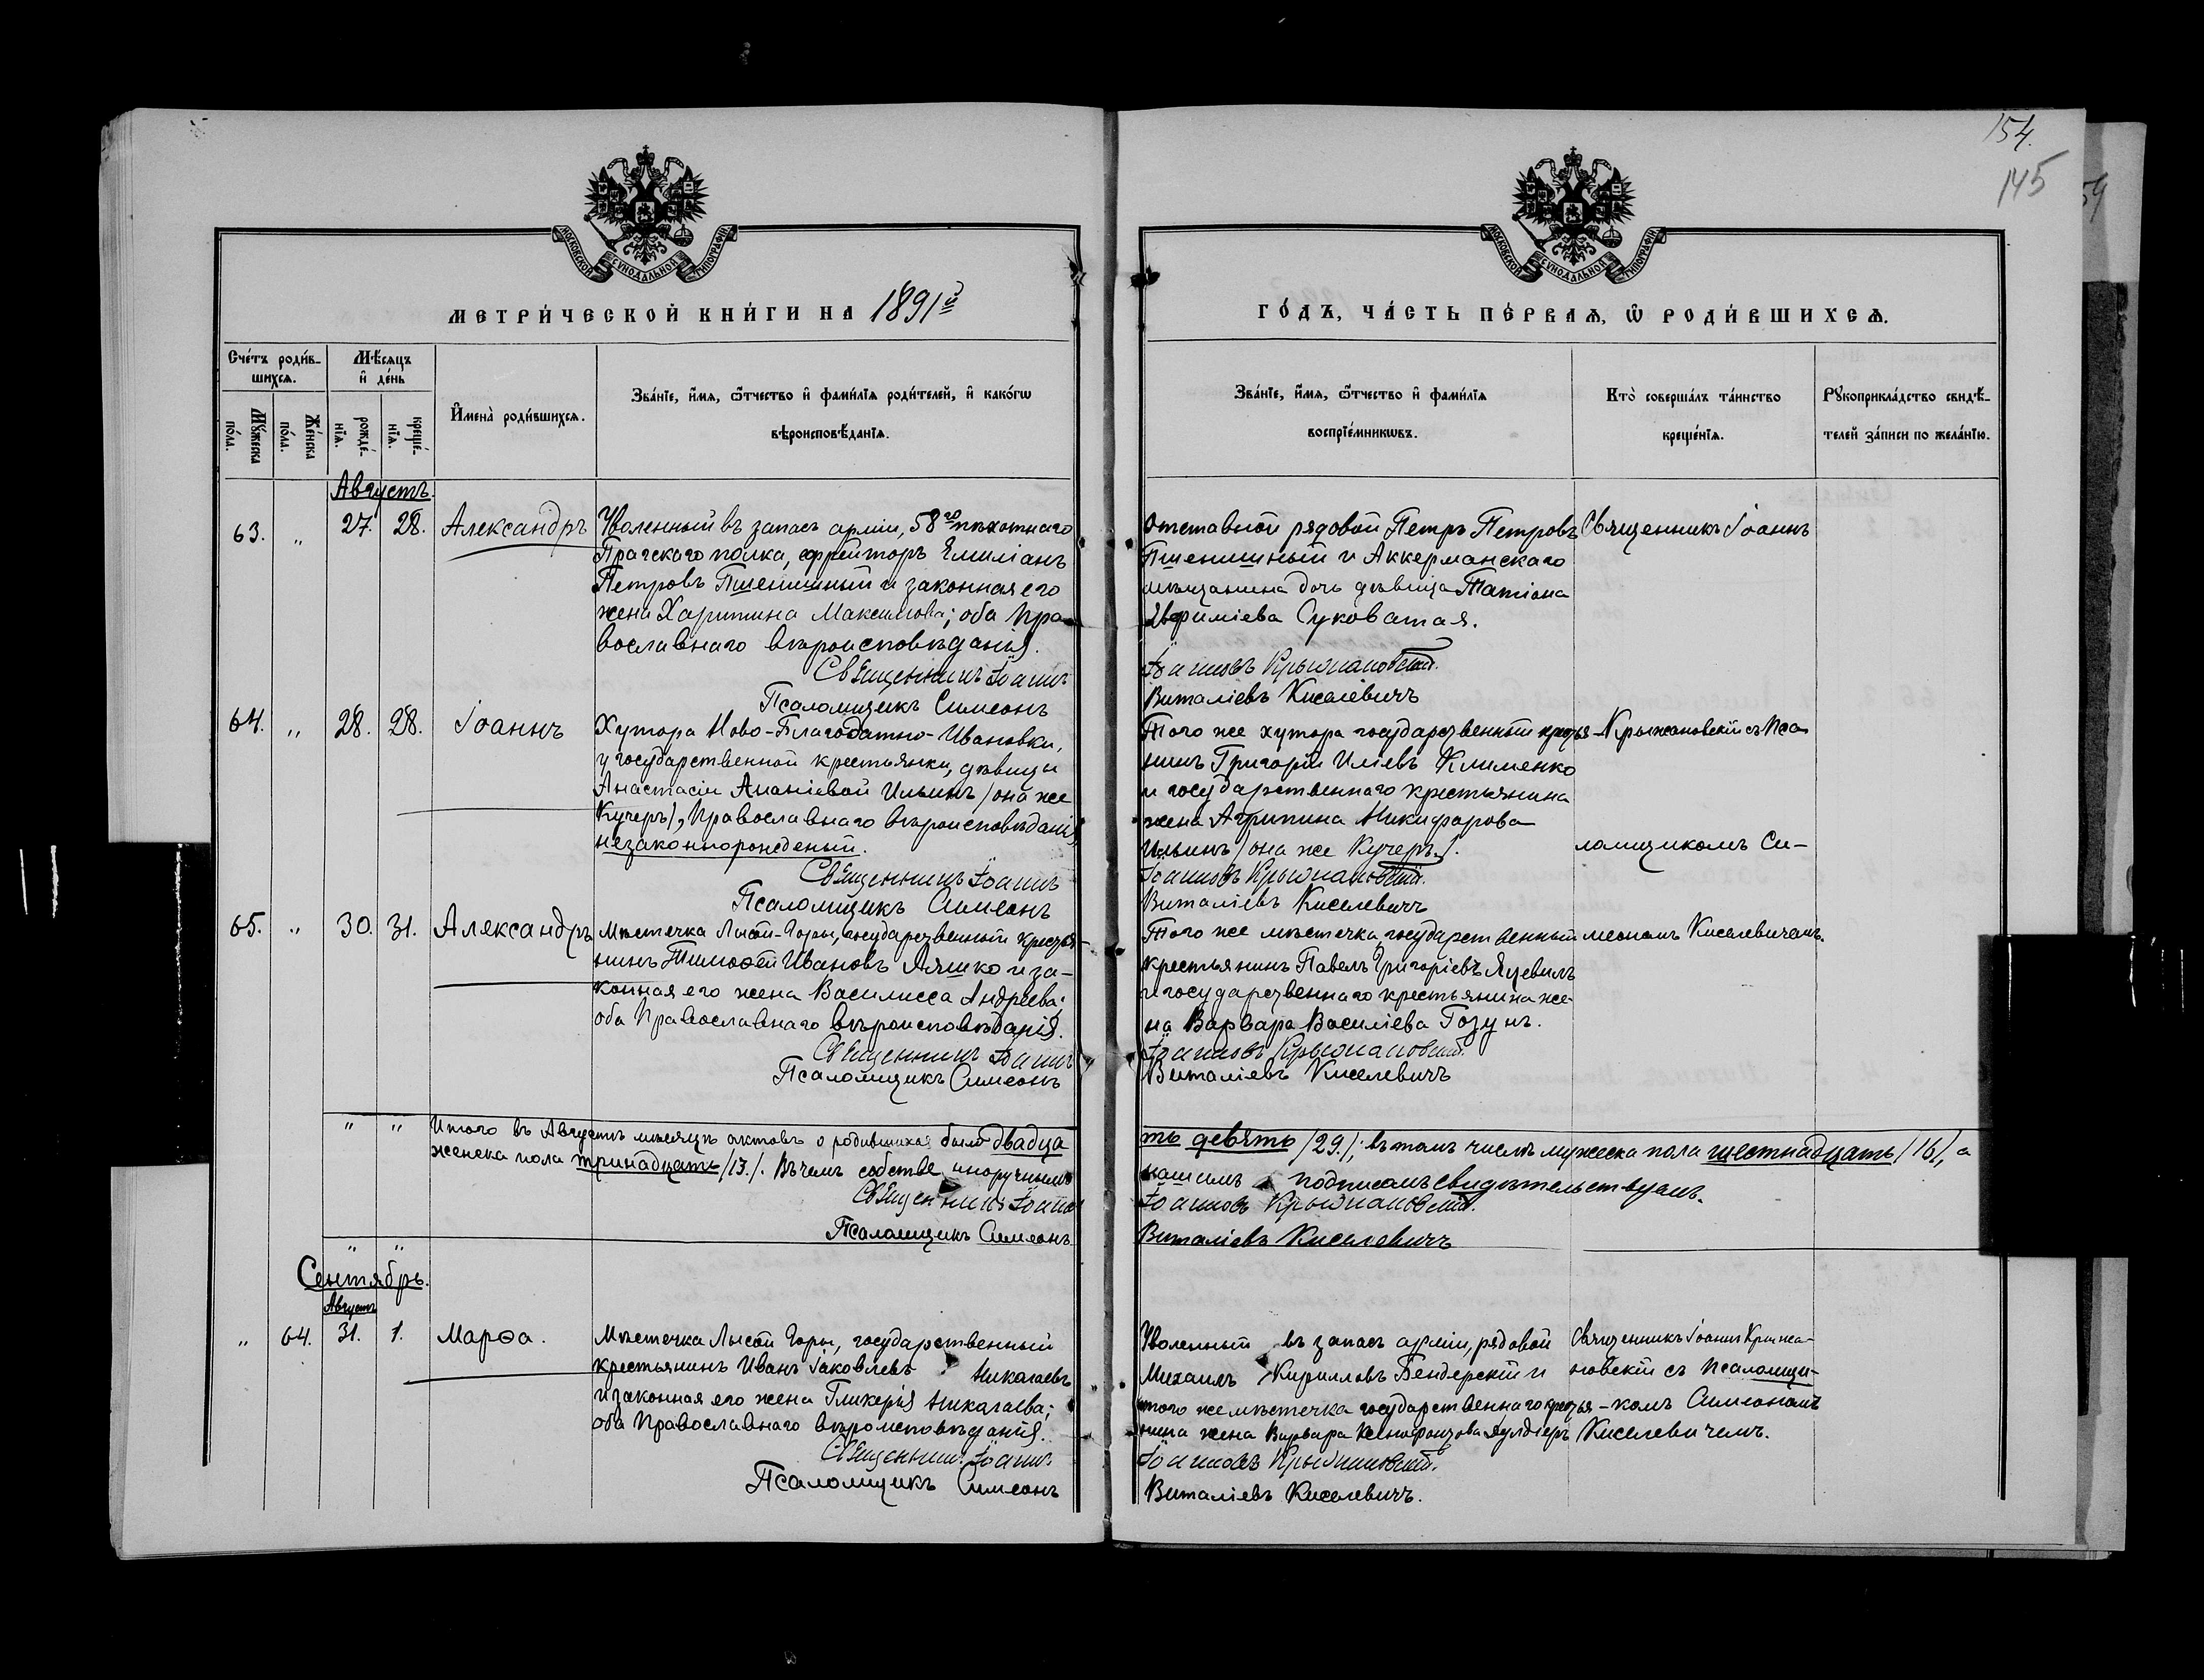 154.
145
59
МОСКОВСКОЙ СѴНОДАЛЬНОЙ ТИПОГРАФІИ
МОСКОВСКОЙ СѴНОДАЛЬНОЙ ТИПОГРАФІИ
МЕТРИ́ЧЕСКОЙ КНИ́ГИ НА 1891й
ГО́ДЪ, ЧА́СТЬ ПЕ́РВАѦ, Ѿ РОДИ́ВШИХСѦ.
Сче́тъ роди́в-
шихсѧ.
Мѣ́сѧцъ
и҆ де́нь
Мꙋ́жеска
по́ла.
Же́нска
по́ла.
рожде́-
нїѧ.
креще́-
нїѧ.
И҆мена̀ роди́вшихсѧ.
Зва́нїе, и҆́мѧ, ѻ҆́тчество и҆ фами́лїѧ роди́телей, и҆ како́гѡ
вѣроисповѣ́данїѧ.
Зва́нїе, и҆́мѧ, ѻ҆́тчество и҆ фами́лїѧ
воспрїе́мникѡвъ.
Кто̀ соверша́лъ та́инство
креще́нїѧ.
Рꙋкоприкла́дство свидѣ́-
телей за́писи по жела́нїю.
Августъ.
63. " 27. 28. Александръ
Уволенный въ запасъ арміи, 58го пѣхотнаго
Прагскаго полка, ефрейторъ Емиліанъ
Петровъ Пшенишный и законная его
жена Харитина Максимова; оба пра-
вославнаго вѣроисповѣданія.
Священникъ Іоаннъ
Псаломщикъ Симеонъ
Отставной рядовой Петръ Петровъ
Пшенишный и Аккерманскаго
мѣщанина дочь дѣвица Татіана
Евфиміева Суковатая.
Іоанновъ Крыжановскій.
Виталіевъ Киселевичъ
Священникъ Іоаннъ
64. " 28. 28. Іоаннъ
Хутора Ново-Благодатно-Ивановки,
у государственной крестьянки, дѣвицы
Анастасіи Ананіевой Ильинъ /она же
Кучеръ/, Православнаго вѣроисповѣданія,
незаконнорожденый.
Священникъ Іоаннъ
Псаломщикъ Симеонъ
Того же хутора государственный крестья-
нинъ Григорій Иліевъ Клименко
и государственнаго крестьянина
жена Агрипина Никифорова
Ильинъ /она же Кучеръ./.
Іоанновъ Крыжановскій.
Виталіевъ Киселевичъ
Крыжановскій съ Пса-
ломщикомъ Си-
65. " 30. 31. Александръ
Мѣстечка Лысой-Горы, государственный крестья-
нинъ Тимофей Ивановъ Ляшко и за-
конная его жена Василисса Андреева;
оба Православнаго вѣроисповѣданія.
Священникъ Іоаннъ
Псаломщикъ Симеонъ
Того же мѣстечка, государственный
крестьянинъ Павелъ Григоріевъ
и государственнаго крестьянина же-
на Варвара Василіева Гозунъ.
Іоанновъ Крыжановскій.
Виталіевъ Киселевичъ
меономъ Киселевичемъ.
" " Итого въ Августѣ мѣсяцѣ актовъ о родившихся было двадца
ть девять /29./; въ томъ числѣ мужеска пола шестнадцать /16/, а
женска пола тринадцать /13./. Въ чемъ собственноручнымъ
нашимъ подписомъ свидѣтельствуемъ.
Священникъ Іоаннъ
Іоанновъ Крыжановскій.
Псаломщикъ Симеонъ
Виталіевъ Киселевичъ
" "
Сентябрь.
Августъ
" 64. 31. 1. Марѳа.
Мѣстечка Лысой Горы, государственный
крестьянинъ Иванъ Іаковлевъ Николаевъ
и законная его жена Гликерія Николаева;
оба Православнаго вѣроисповѣданія.
Священникъ Іоаннъ
Псаломщикъ Симеонъ
Уволенный въ запасъ арміи, рядовой
Михаилъ Кирилловъ Бендерскій и
того же мѣстечка государственнаго крестья-
нина жена Варвара
Іоанновъ Крыжановскій.
Виталіевъ Киселевичъ.
Священникъ Іоаннъ Крыжа-
новскій съ Псаломщи-
комъ Симеономъ
Киселевичемъ.